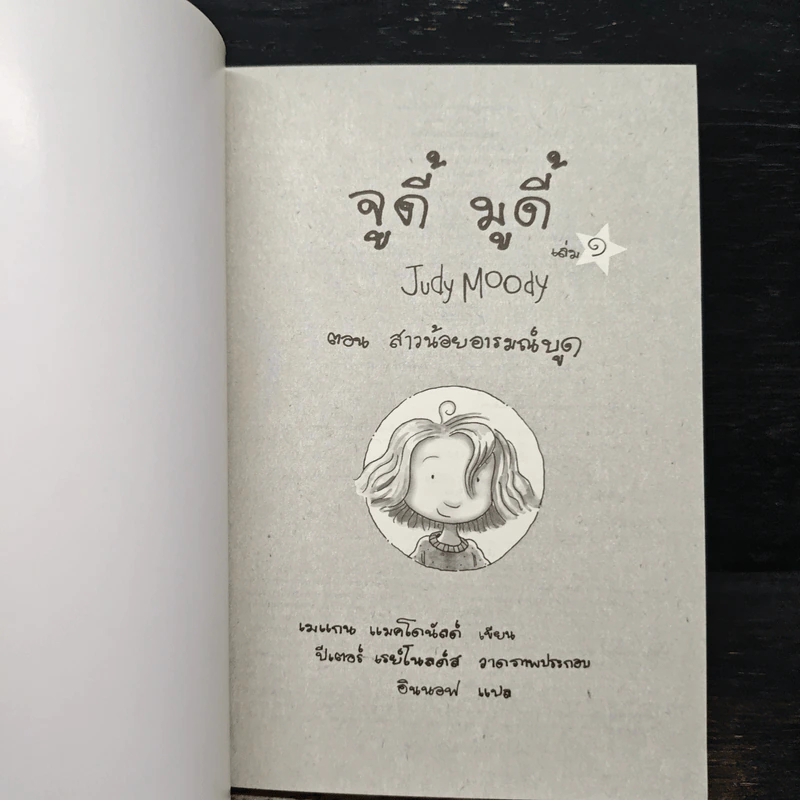 จูดี้ มูดี้
เล่ม ๑
Judy Moody
ตอน สาวน้อยอารมณ์บูด
เมแกน แมคโดนัลด์ เขียน
ปีเตอร์ เรย์โนลด์ส วาดภาพประกอบ
อินนอฟ แปล